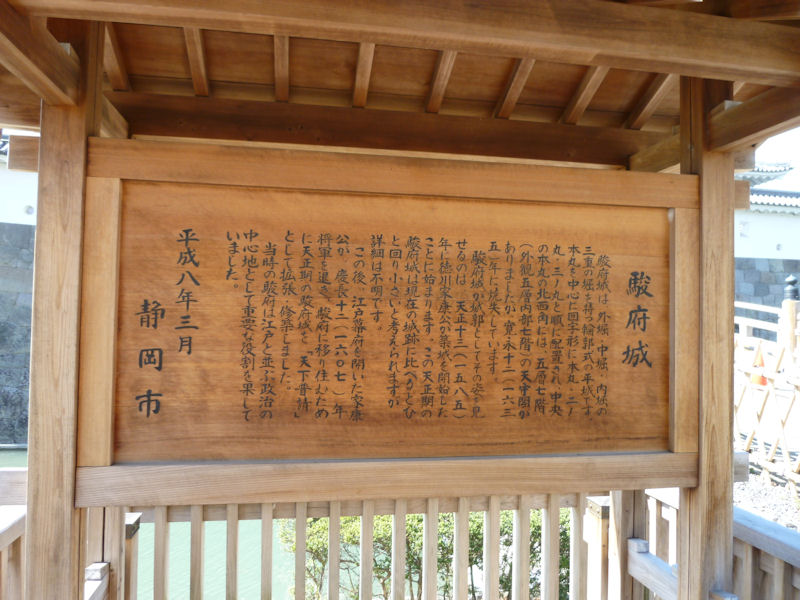 駿府城
駿府城は、外堀、中堀、内堀の
三重の堀を持つ輪郭式の平城です。
本丸を中心に回字形に本丸・二ノ
丸・三ノ丸と順に配置され、中央
の本丸の北西角には、五層七階
(外観五層内部七階)の天守閣が
ありましたが、寛永十二(一六三
五)年に焼失しています。
駿府城が城郭としてその姿を見
せるのは、天正十三(一五八五)
年に徳川家康公が築城を開始した
ことに始まります。この天正期の
駿府城は現在の城跡に比べひとつ
と回り小さいと考えられますが
詳細は不明です。
この後、江戸幕府を開いた家康
公が、慶長十二(一六〇七)年
将軍を退き、駿府に移り住むため
に天正期の駿府城を「天下普請」
として拡張・修築しました。
当時の駿府は江戸と並ぶ政治の
中心地として重要な役割を果して
いました。
平成八年三月
静岡市